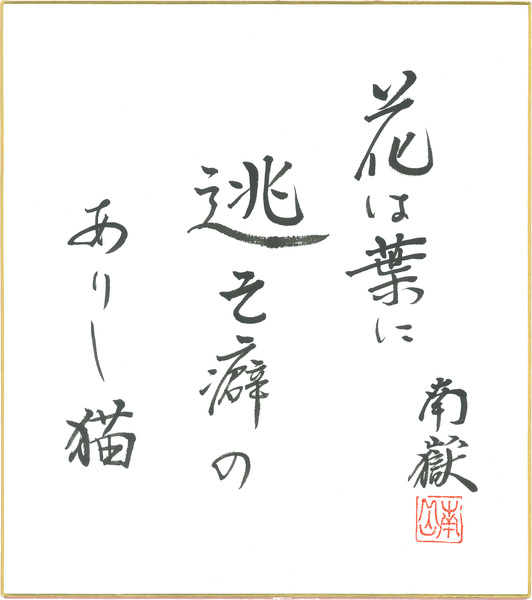 花は葉に
逃亡癖の
ありし猫
南嶽